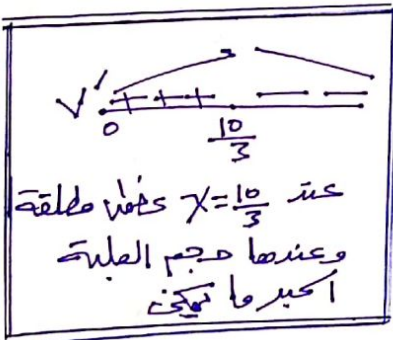 V′
0
10/3
عند x = 10/3 عظمى مطلقة
وعندها حجم العلبة
اكبر ما يمكن